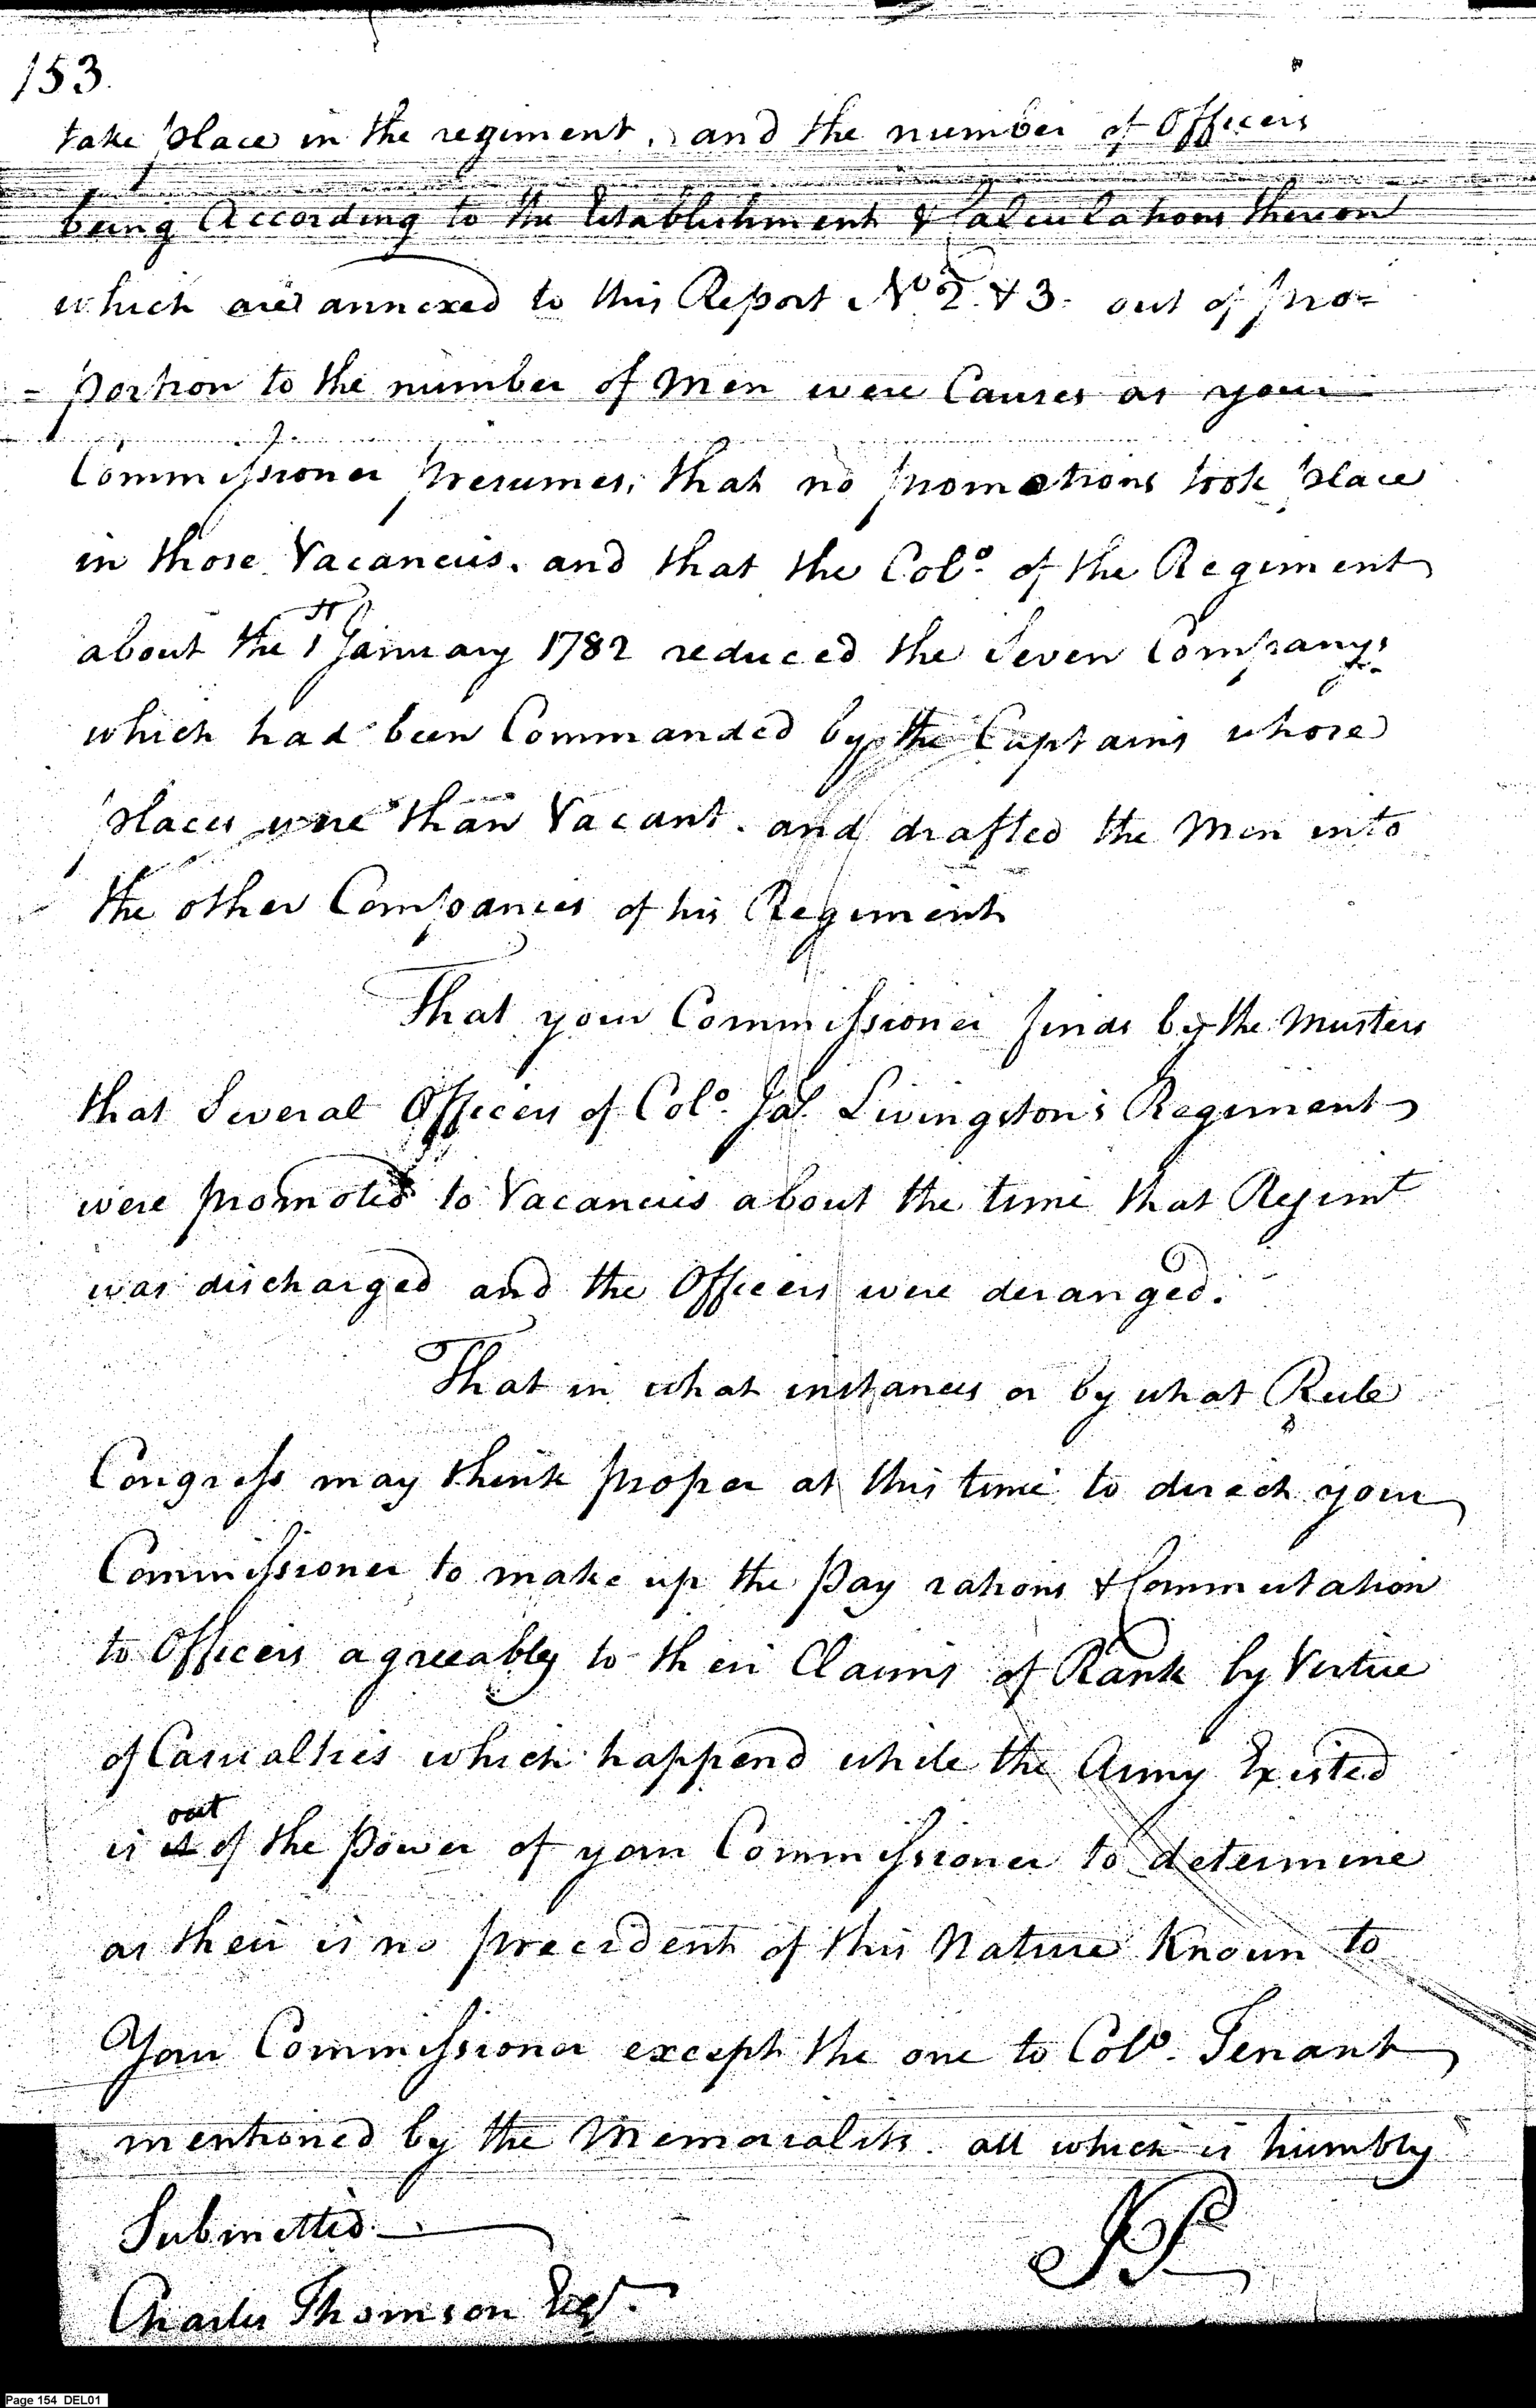 153.
take place in the regiment, and the number of Officers
being According to the Establishment & Calculations thereon
which are annexed to this Report No 2. & 3. out of pro=
= portion to the number of Men were Causes as your
Commissioner presumes, that no promotions took place
in those Vacancies. and that the Colo. of the Regiment
about the 1st January 1782 reduced the Seven Companys
which had been Commanded by the Captains whose
places were than Vacant. and drafted the Men into
the other Companies of his Regiment
That your Commissioner finds by the Musters
that Several Officers of Colo. Jas. Livingston's Regiment
were promoted to Vacancies about the time that Regimt
was discharged and the Officers were deranged.
That in what instances or by what Rule
Congress may think proper at this time to direct your
Commissioner to make up the Pay rations & Commutation
to Officers agreeably to their Claims of Rank by Vertue
of Casualties which happend while the Army Existed
is out of the Power of your Commissioner to determine
as their is no precident of this Nature Known to
Your Commissioner except the one to Colo. Tenant
mentioned by the Memorialists. all which is humbly
Submitted.
Charles Thomson Esqr.
Page 154 DEL01